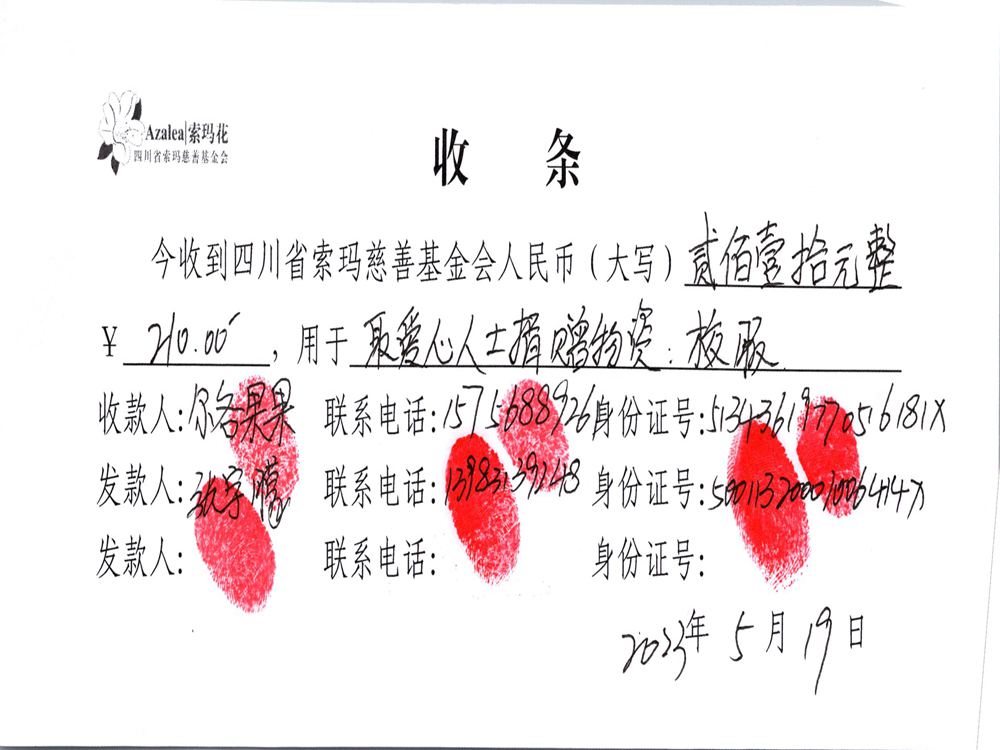 Azalea|索玛花
四川省索玛慈善基金会
收 条
今收到四川省索玛慈善基金会人民币（大写）贰佰壹拾元整
¥ 210.00 ，用于 取爱心人士捐赠物资：校服
收款人：尔各果果 联系电话：15756889261 身份证号：51343619770516181X
发款人：张宇 联系电话：13983139248 身份证号：
发款人： 联系电话： 身份证号：
2023年 5 月 19 日